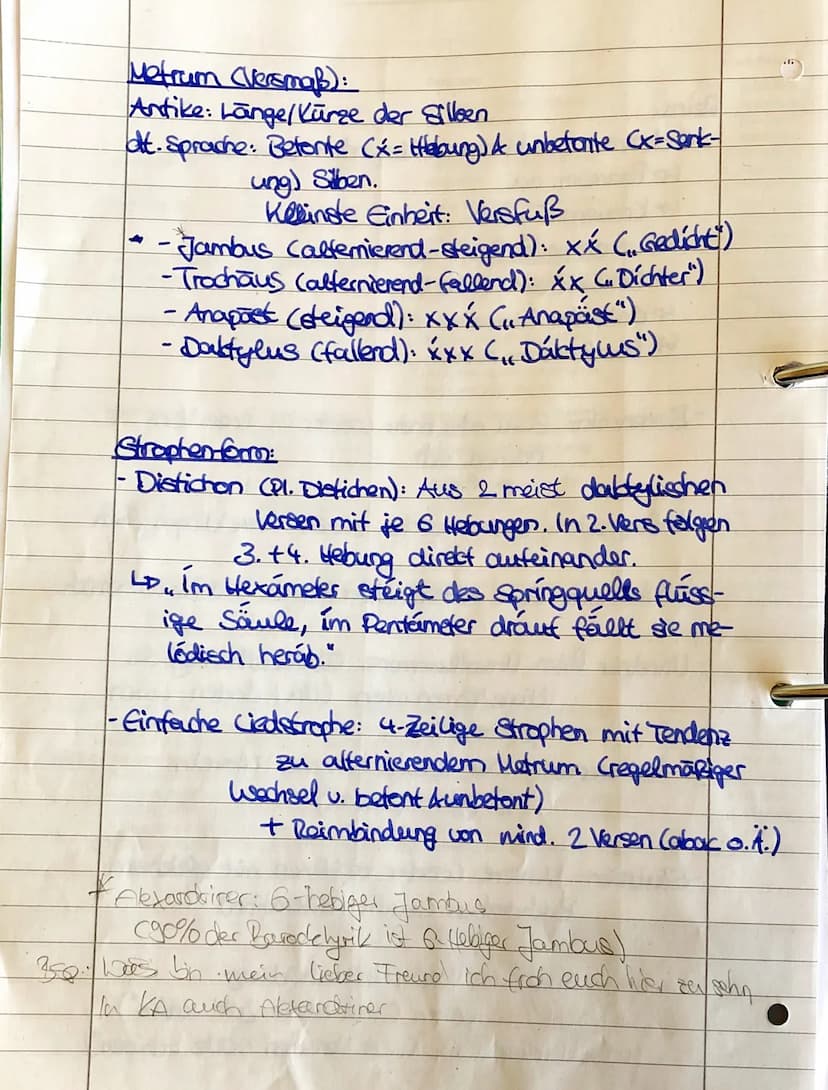 Metrum (Versmaß):
Antike: Länge/Kürze der Silben
dt. Sprache: Betonte (x́ = Hebung) & unbetonte (x=Senk-
ung) Silben.
Kleinste Einheit: Versfuß
* - Jambus (alternierend-steigend): xx́ („Gedícht")
- Trochäus (alternierend-fallend): x́x („Díchter")
- Anapäst (steigend): xxx́ („Anapä́st")
- Daktylus (fallend): x́xx („Dáktylus")
Strophenform:
- Distichon (Pl. Distichen): Aus 2 meist daktylischen
Versen mit je 6 Hebungen. In 2. Vers folgen
3. + 4. Hebung direkt aufeinander.
↳ „Ím Hexámeter stéigt des Spríngquells flǘss-
ige Sä́ule, ím Pentámeter dráuf fä́llt sie me-
lódisch heráb."
- Einfache Liedstrophe: 4-Zeilige Strophen mit Tendenz
zu alternierendem Metrum (regelmäßiger
Wechsel v. betont & unbetont)
+ Reimbindung von mind. 2 Versen (abac o.Ä.)
* Alexandriner: 6-hebiger Jambus
(90% der Barocklyrik ist 6 Hebiger Jambus)
bin mein lieber Freund ich froh euch hier zu sehn
In KA auch Alexandriner